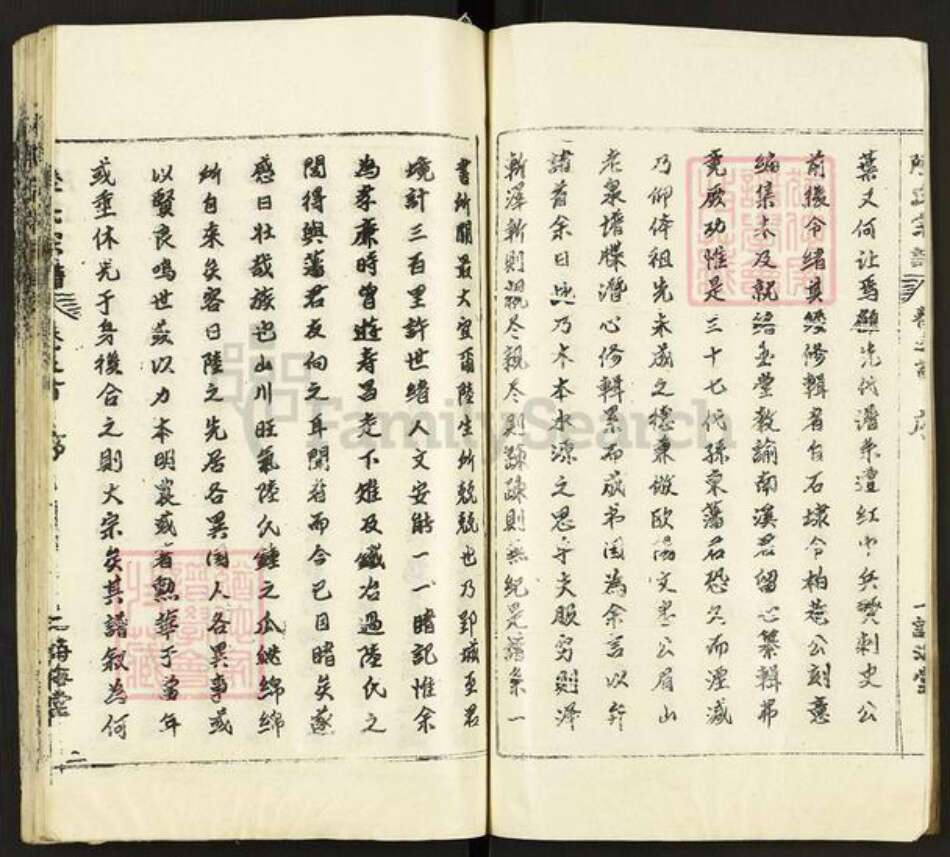 陸氏宗譜 卷之首 序 一 誦
葉又何讓焉顯先代潛系遭紅巾兵燹刺史公
前後令緒其幾修輯者自石埭令柏菴公刻意
編集未及就緒至瑩教諭南溪君留心纂輯弗
竟厥功惟是三十七代孫東藩君恐久而湮滅
乃仰体祖先未成之德兼倣欧陽文忠公眉山
老泉譜牒潛心修輯累而成书因為余言以弁
諸首余曰此乃木本水源之思乎夫服穷則澤
斬澤斬則親尽親尽則疎疎則無紀是譜系一
書所關最大宜爾陸生所兢兢也乃郢城至君
境計三百里許世緒人文安能一一睹記惟余
為孝廉時曾遊寿昌走下雉及鐵冶過陸氏之
閭得與藩君友向之耳聞者而今已目睹矣遂
感曰壮哉族也山川旺氣陸氏鍾之瓜綿綿
所自来矣客曰陸之先居各異國人各異事或
以賢良鳴世兹以力本明農或著勲華于當年
或垂休光于身後合之則大宗矣其譜叙為何
陸氏宗譜 卷之首 序 二 誦海堂
FamilySearch